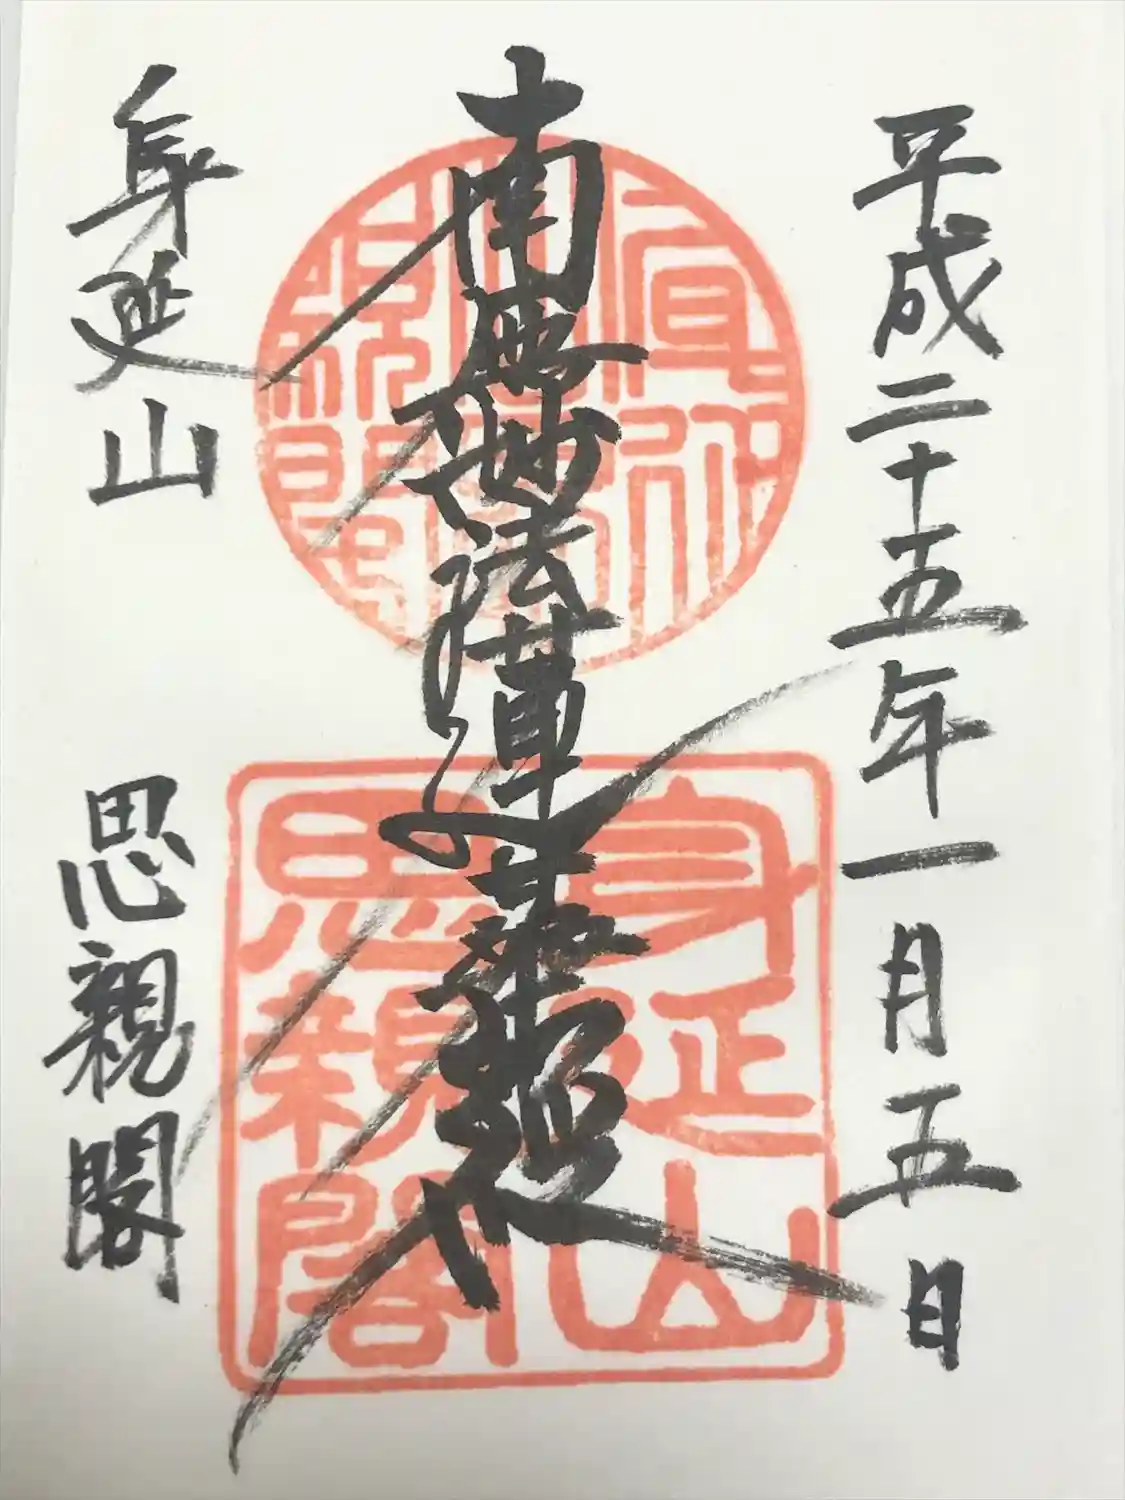 平成二十五年一月五日
南無妙法蓮華経
身延山 思親閣
身延山
思親閣